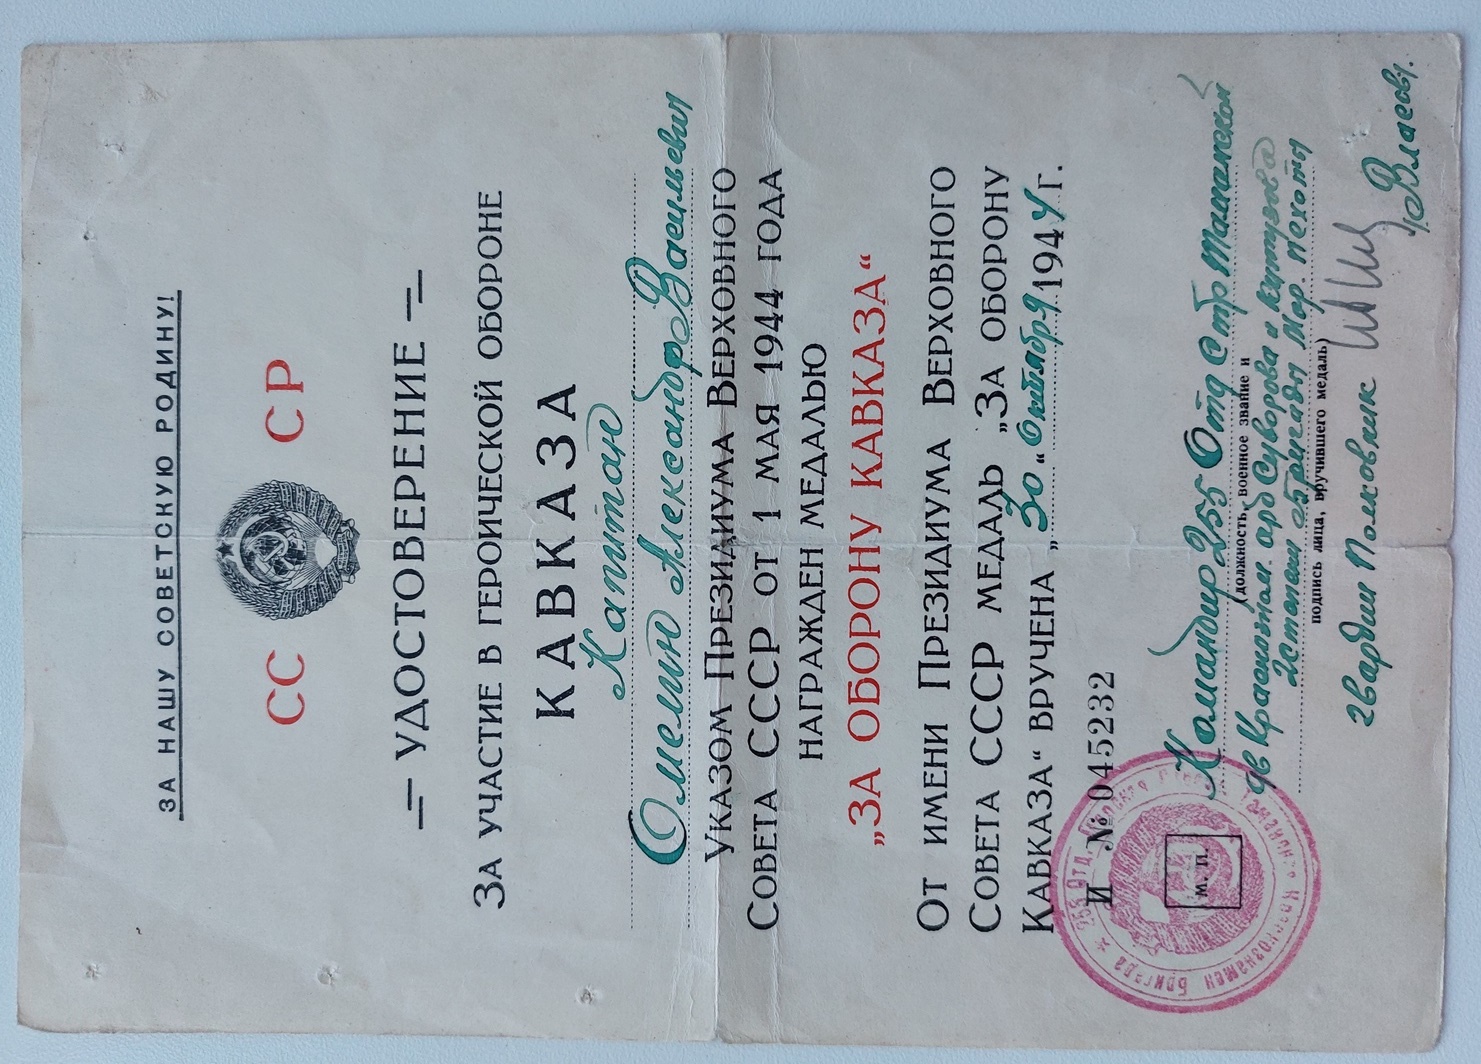 ЗА НАШУ СОВЕТСКУЮ РОДИНУ!
СС СР
УДОСТОВЕРЕНИЕ
ЗА УЧАСТИЕ В ГЕРОИЧЕСКОЙ ОБОРОНЕ
КАВКАЗА
Капитан
Омелин Александр Васильевич
УКАЗОМ ПРЕЗИДИУМА ВЕРХОВНОГО
СОВЕТА СССР ОТ 1 МАЯ 1944 ГОДА
НАГРАЖДЕН МЕДАЛЬЮ
„ЗА ОБОРОНУ КАВКАЗА“
ОТ ИМЕНИ ПРЕЗИДИУМА ВЕРХОВНОГО
СОВЕТА СССР МЕДАЛЬ „ЗА ОБОРОНУ
КАВКАЗА“ ВРУЧЕНА „30“ Октября 1944 г.
И № 045232
Командир 255 Отд
(должность, военное звание и
дв Краснознам. орд Суворова и Кутузова
2 степени бригады Мор. пехоты
подпись лица, вручившего медаль)
гвардии Полковник
/Власов/.
М. П.
255 Отд. Морская Краснознамен Бригада